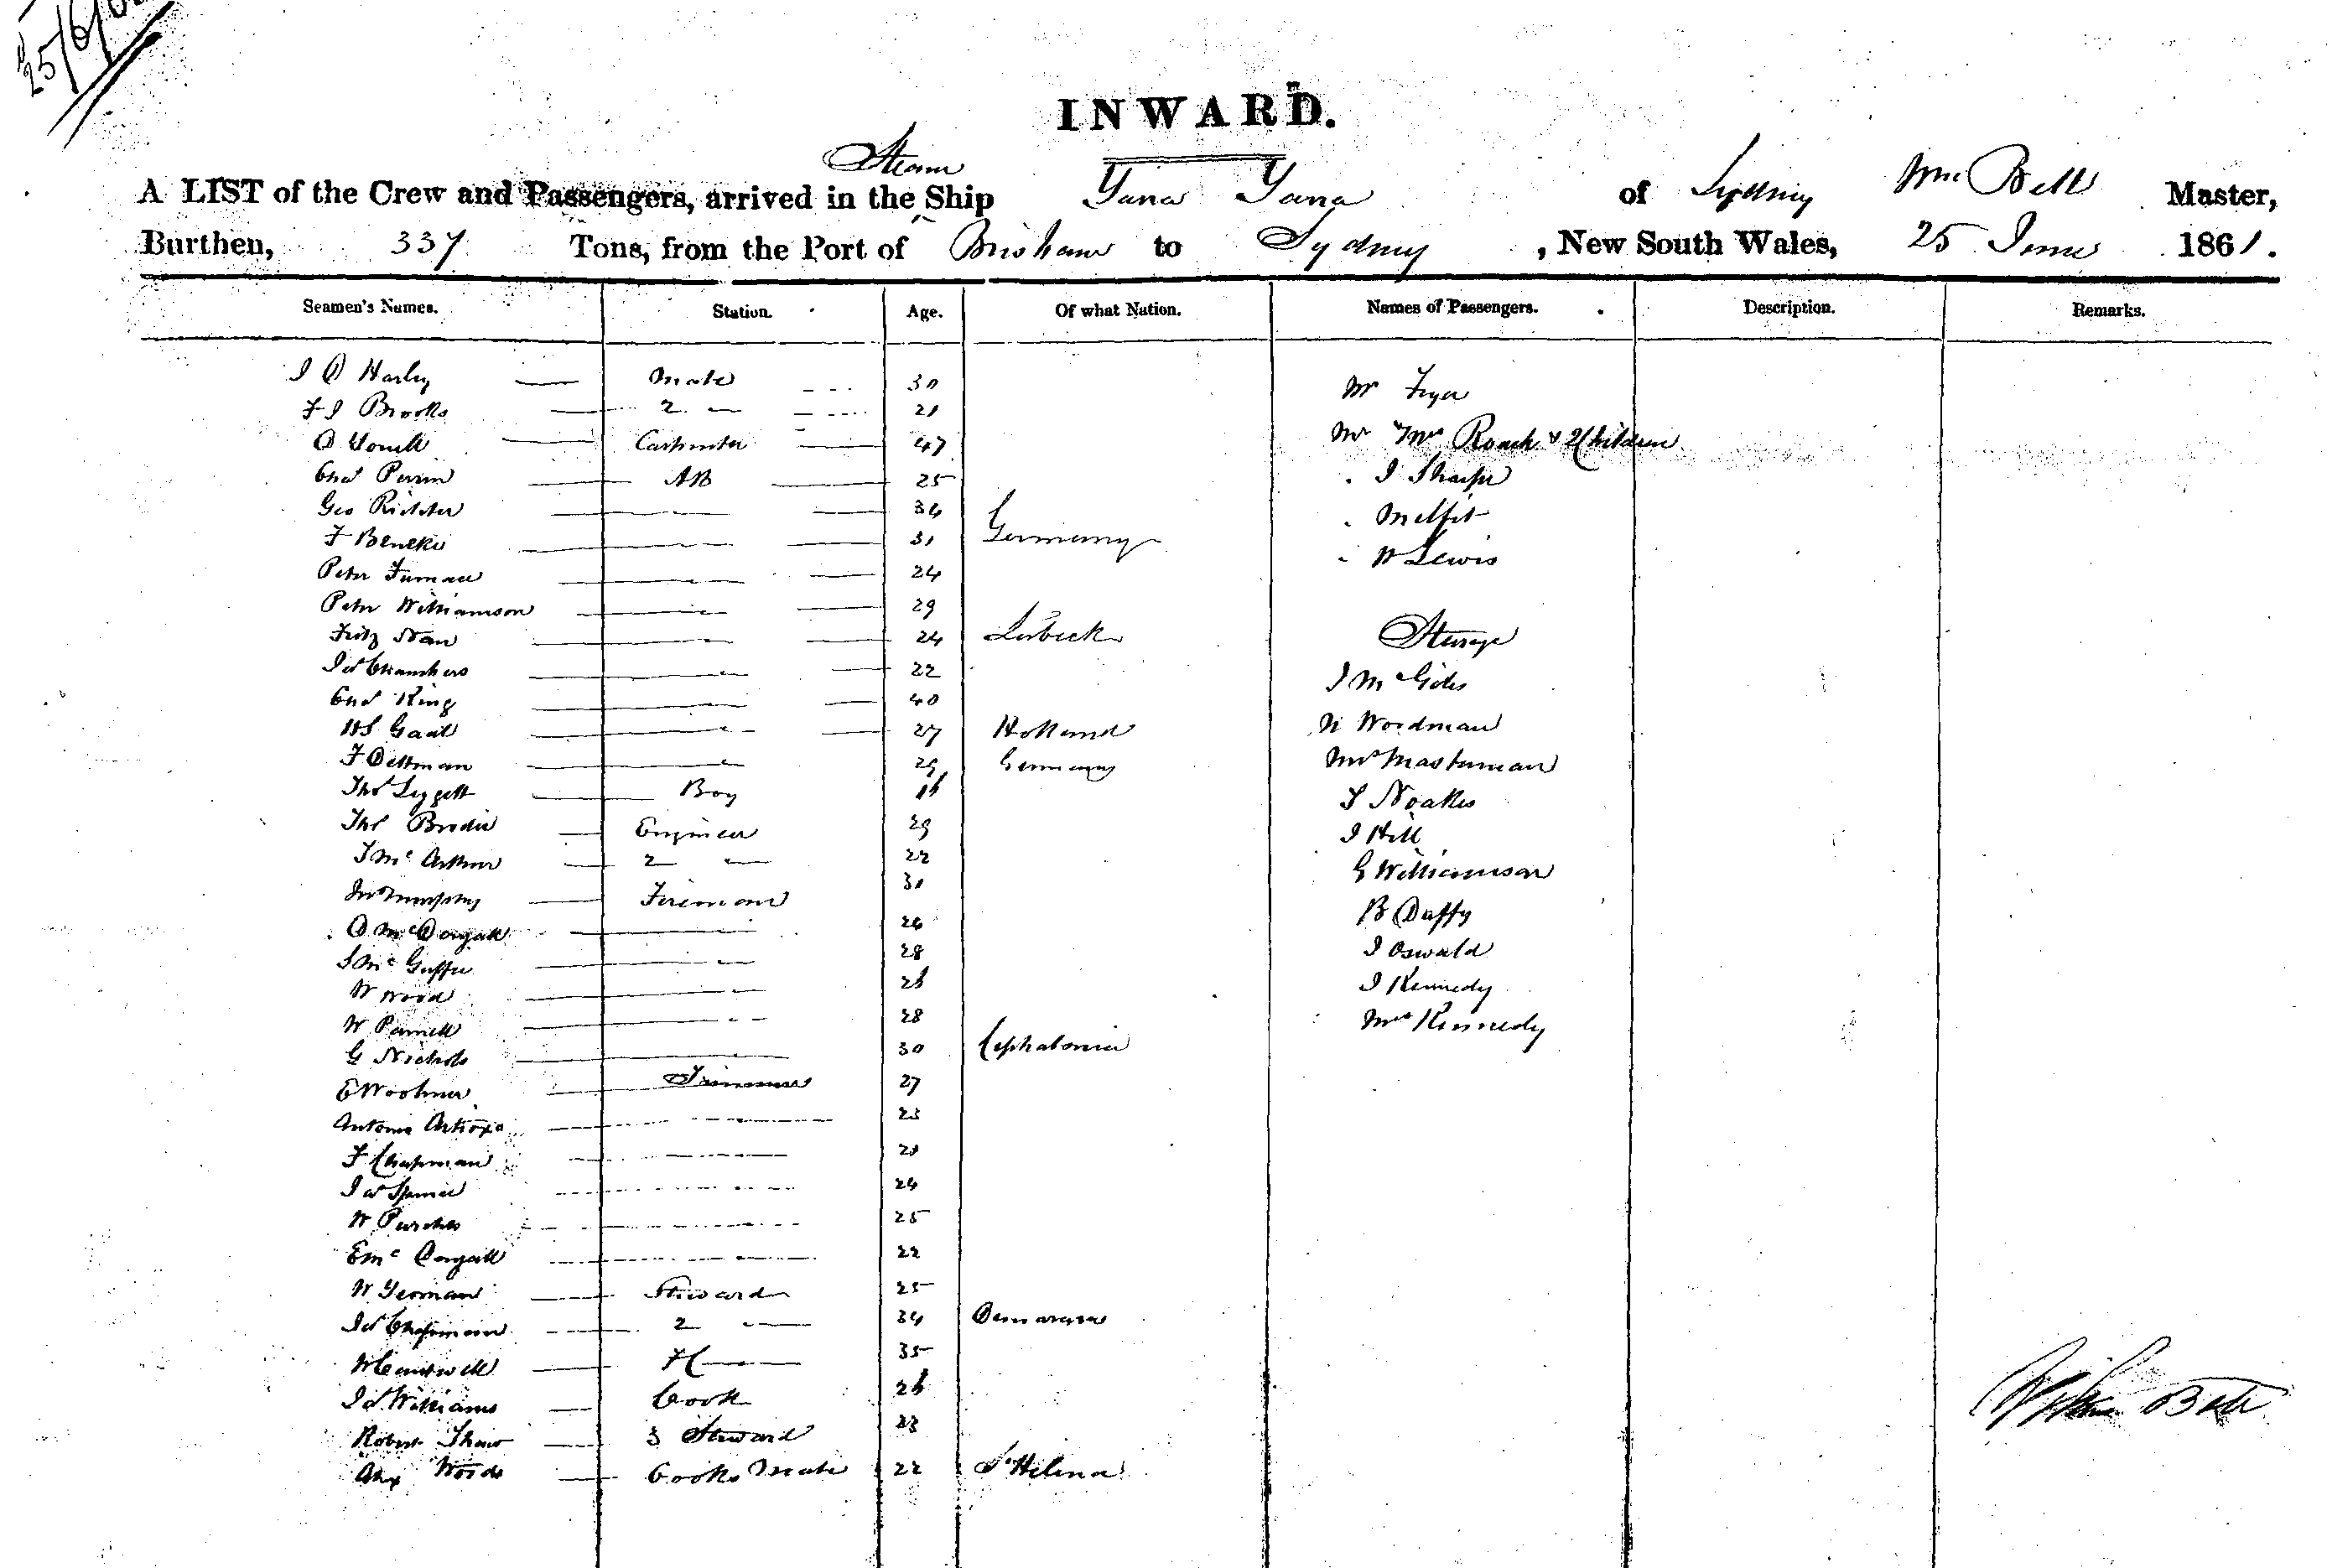 25/6/61
INWARD.
A LIST of the Crew and Passengers, arrived in the Steam Ship Yarra Yarra of Sydney Wm Bell Master,
Burthen, 337 Tons, from the Port of Brisbane to Sydney, New South Wales, 25 June 1861.
Seamen's Names. Station. Age. Of what Nation. Names of Passengers. Description. Remarks.
J D Harley Mate 30 Mr Fryer
F J Brooks 2 " 21 Mr & Mrs Roach & 2 Children
Carpenter 47
Chas Perrin AB 25 " J Sharpe
Geo Richter " 34 "
F Beneke " 31 Germany " W Lewis
Peter Furnace " 24
Peter Williamson " 29
Fritz Nau " 24 Lubeck Steerage
Jas Chambers " 22 J Mc
Chas King " 40
Gaal " 27 Holland Woodman
F Dettman " 29 Germany Mrs Masterman
Thos Leggett Boy 16 Noakes
Thos Brodie Engineer 29 J Hill
J McArthur 2 " 22 G Williamson
Jno Murphy Fireman 31 B Duffy
D McDougall " 26 J Oswald
J McGuffie " 28 J Kennedy
W Wood " 26 Mrs Kennedy
W Parnell " 28
G Nichols " 30 Cephalonia
E Woolmer Trimmer 27
Antonio " 23
F Chapman " 21
Jas Spence " 24
W Purches " 25
E McDougall " 22
W Yeoman Steward 25
Jas Chapman 2 " 34 Demarara
W Cantwell F C " 35
Jas Williams Cook 26
Robert Shaw 3 Steward 23
Alex Woods Cooks Mate 22 St Helena
William Bell